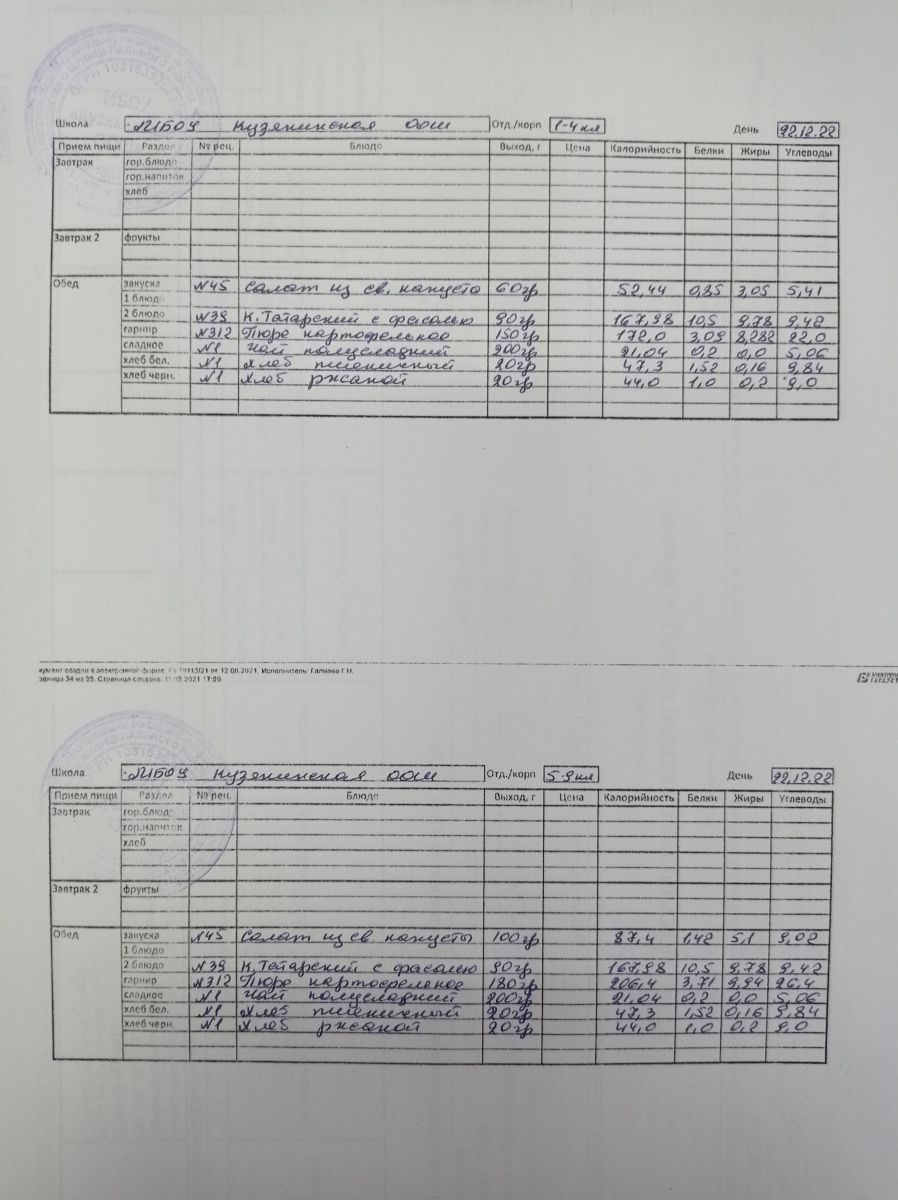 ОГРН 1031635203
МБОУ
Школа МБОУ Кузякинская ООШ Отд./корп 1-4 кл День 22.12.22
Прием пищи Раздел № рец. Блюдо Выход, г Цена Калорийность Белки Жиры Углеводы
Завтрак гор.блюдо
гор.напиток
хлеб
Завтрак 2 фрукты
Обед закуска №45 Салат из св. капусты 60гр 52,44 0,85 3,05 5,41
1 блюдо
2 блюдо №39 К. Татарский с фасолью 90гр 167,98 10,5 9,78 9,42
гарнир №312 Пюре картофельное 150гр 172,0 3,09 8,282 22,0
сладкое №1 Чай полусладкий 200гр 21,04 0,2 0,0 5,06
хлеб бел. №1 Хлеб пшеничный 20гр 47,3 1,52 0,16 9,84
хлеб черн. №1 Хлеб ржаной 20гр 44,0 1,0 0,2 9,0
кумент создан в электронной форме. 12.08.2021. Исполнитель:
аница 34 из 35. Страница создана: 2021 17:09
Школа МБОУ Кузякинская ООШ Отд./корп 5-9 кл День 22.12.22
Прием пищи Раздел № рец. Блюдо Выход, г Цена Калорийность Белки Жиры Углеводы
Завтрак гор.блюдо
гор.напиток
хлеб
Завтрак 2 фрукты
Обед закуска №45 Салат из св капусты 100гр 87,4 1,42 5,1 9,02
1 блюдо
2 блюдо №39 К. Татарский с фасолью 90гр 167,98 10,5 9,78 9,42
гарнир №312 Пюре картофельное 180гр 206,4 3,71 9,94 26,4
сладкое №1 Чай полусладкий 200гр 21,04 0,2 0,0 5,06
хлеб бел. №1 Хлеб пшеничный 20гр 47,3 1,52 0,16 9,84
хлеб черн. №1 Хлеб ржаной 20гр 44,0 1,0 0,2 9,0